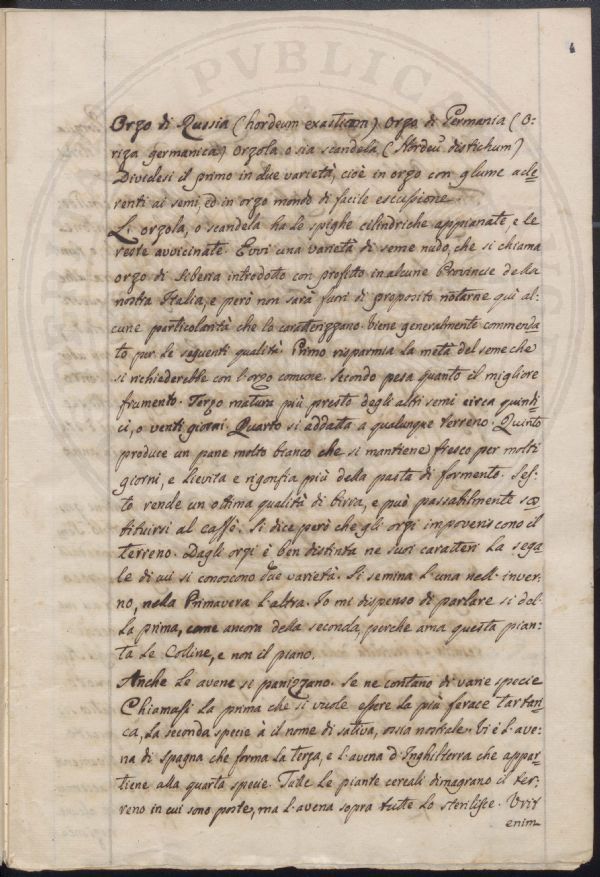 PVBLIC
4
Orzo di Russia (hordeum exasticum) Orzo di Germania (O-
riza germanica) orzola o sia scandela (Hordeũ distichum)
Dividesi il primo in due varietà, cioè in orzo con glume ade-
renti ai semi, ed in orzo mondo di facile escussione.
L'orzola, o scandela ha le spighe cilindriche appianate e le
reste avvicinate. Evvi una varietà di seme nudo, che si chiama
orzo di Siberia introdotto con profitto in alcune Provincie della
nostra Italia, e però non sarà fuori di proposito notarne quì al-
cune particolarità che lo caratterizzano. Viene generalmente commenda-
to per le seguenti qualità. Primo risparmia la metà del seme che
si richiederebbe con l'orzo comune. Secondo pesa quanto il migliore
frumento. Terzo matura più presto degli altri semi circa quindi-
ci, o venti giorni. Quarto si addatta a qualunque terreno. Quinto
produce un pane molto bianco che si mantiene fresco per molti
giorni, e lievita e rigonfia più della pasta di formento. Ses-
to rende un ottima qualità di birra, e può passabilmente sos-
tituirsi al caffè. Si dice però che gli orzi impoveriscono il
terreno. Dagli orzi è ben distinta ne suoi caratteri la sega-
le di cui si conoscono due varietà. Si semina l'una nell'inver-
no, nella Primavera l'altra. Io mi dispenso di parlare sì del-
la prima, come ancora della seconda, perche ama questa pian-
ta le Colline, e non il piano.
Anche le avene si panizzano. Se ne contano di varie specie
Chiamasi la prima che si vuole essere la più ferace tartari-
ca, la seconda specie à il nome di sativa, ossia nostrale. Vi è l'ave-
na di Spagna che forma la terza, e l'avena d'Inghilterra che appar-
tiene alla quarta specie. Tutte le piante cereali dimagrano il ter-
reno in cui sono poste, ma l'avena sopra tutte lo sterilisce. Urit
enim